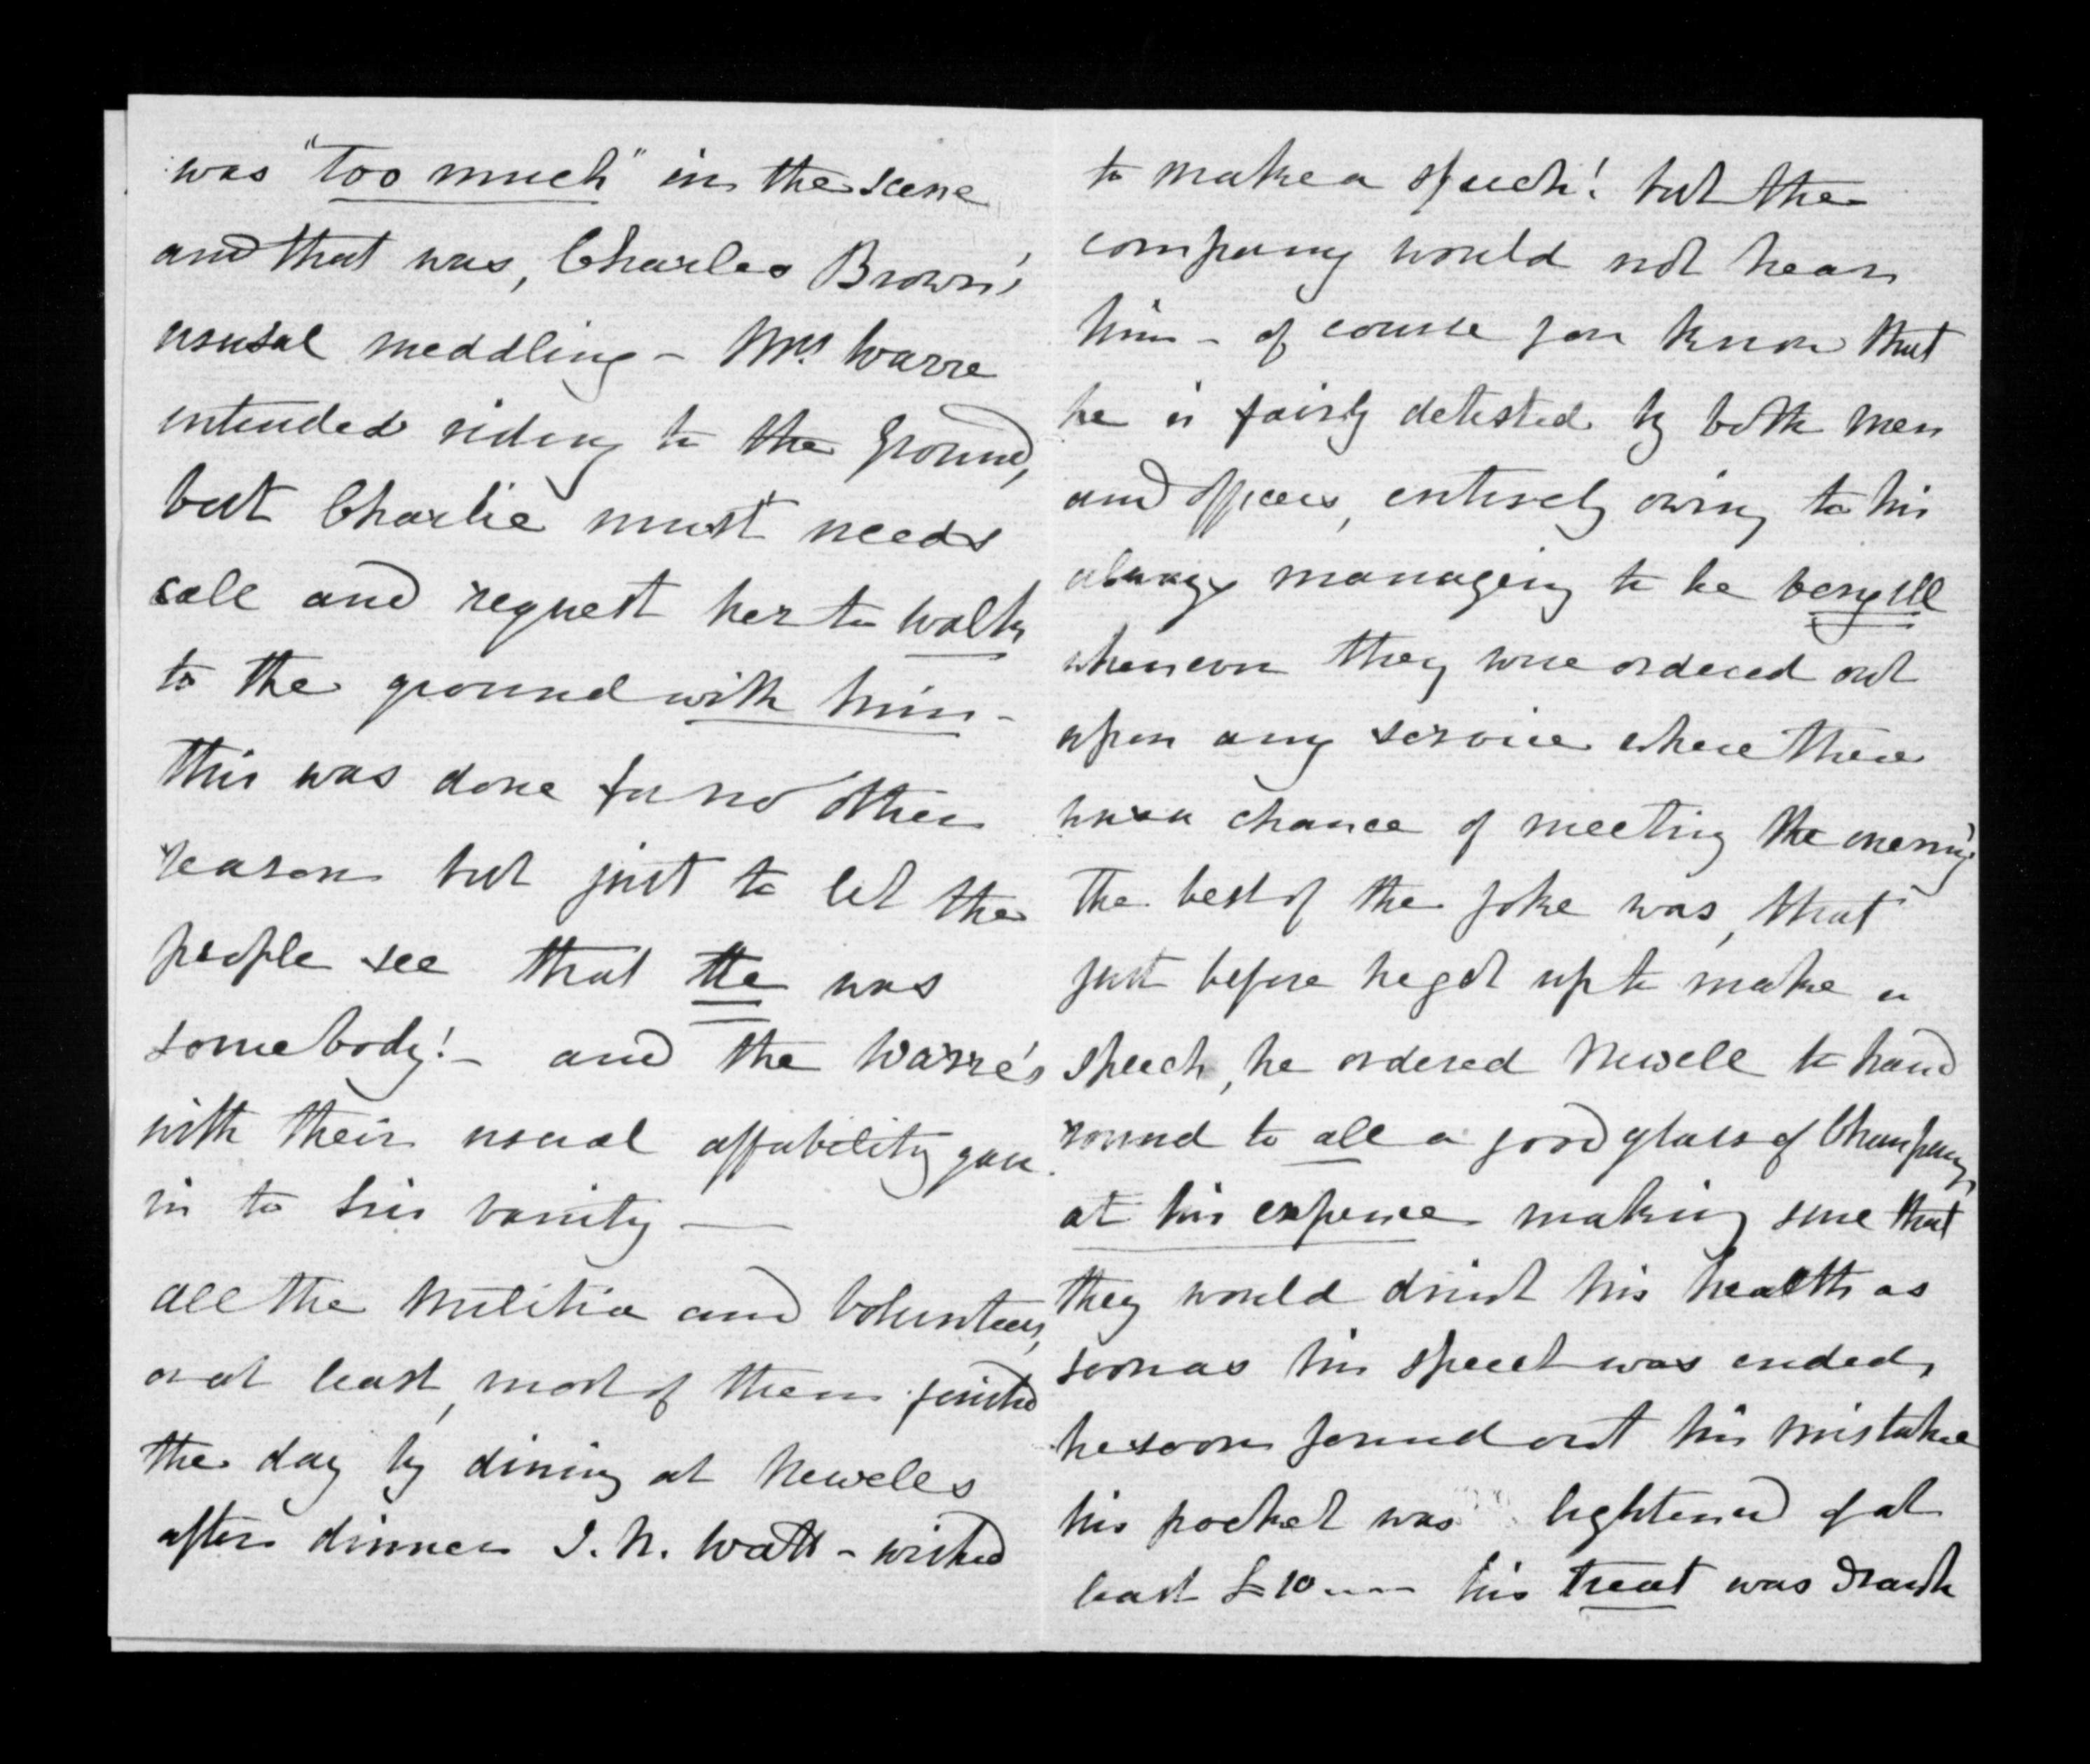 was "too much" in the scene
and that was, Charles Brown's
usual meddling - Mrs. Warre
intended riding to the ground,
but Charlie must needs
call and request her to walk
to the ground with him -
this was done for no other
reason but just to let the
people see that He was
somebody! - and the Warre's
with their usual affability gave
in to his vanity —
all the Militia and Volunteers,
or at least, most of them finished
the day by dining at Newells
after dinner J. N. Watt - wished
to make a speech! but the
company would not hear
him - of course you know that
he is fairly detested by both men
and officers, entirely owing to his
always managing to be very ill
whenever they were ordered out
upon any service where there
was a chance of meeting the enemy
The best of the joke was, that
just before he got up to make a
speech, he ordered Newell to hand
round to all a good glass of Champagne,
at his expence making sure that
they would drink his health as
soon as his speech was ended,
he soon found out his mistake
his pocket was lightened of at
least £10 his treat was drank